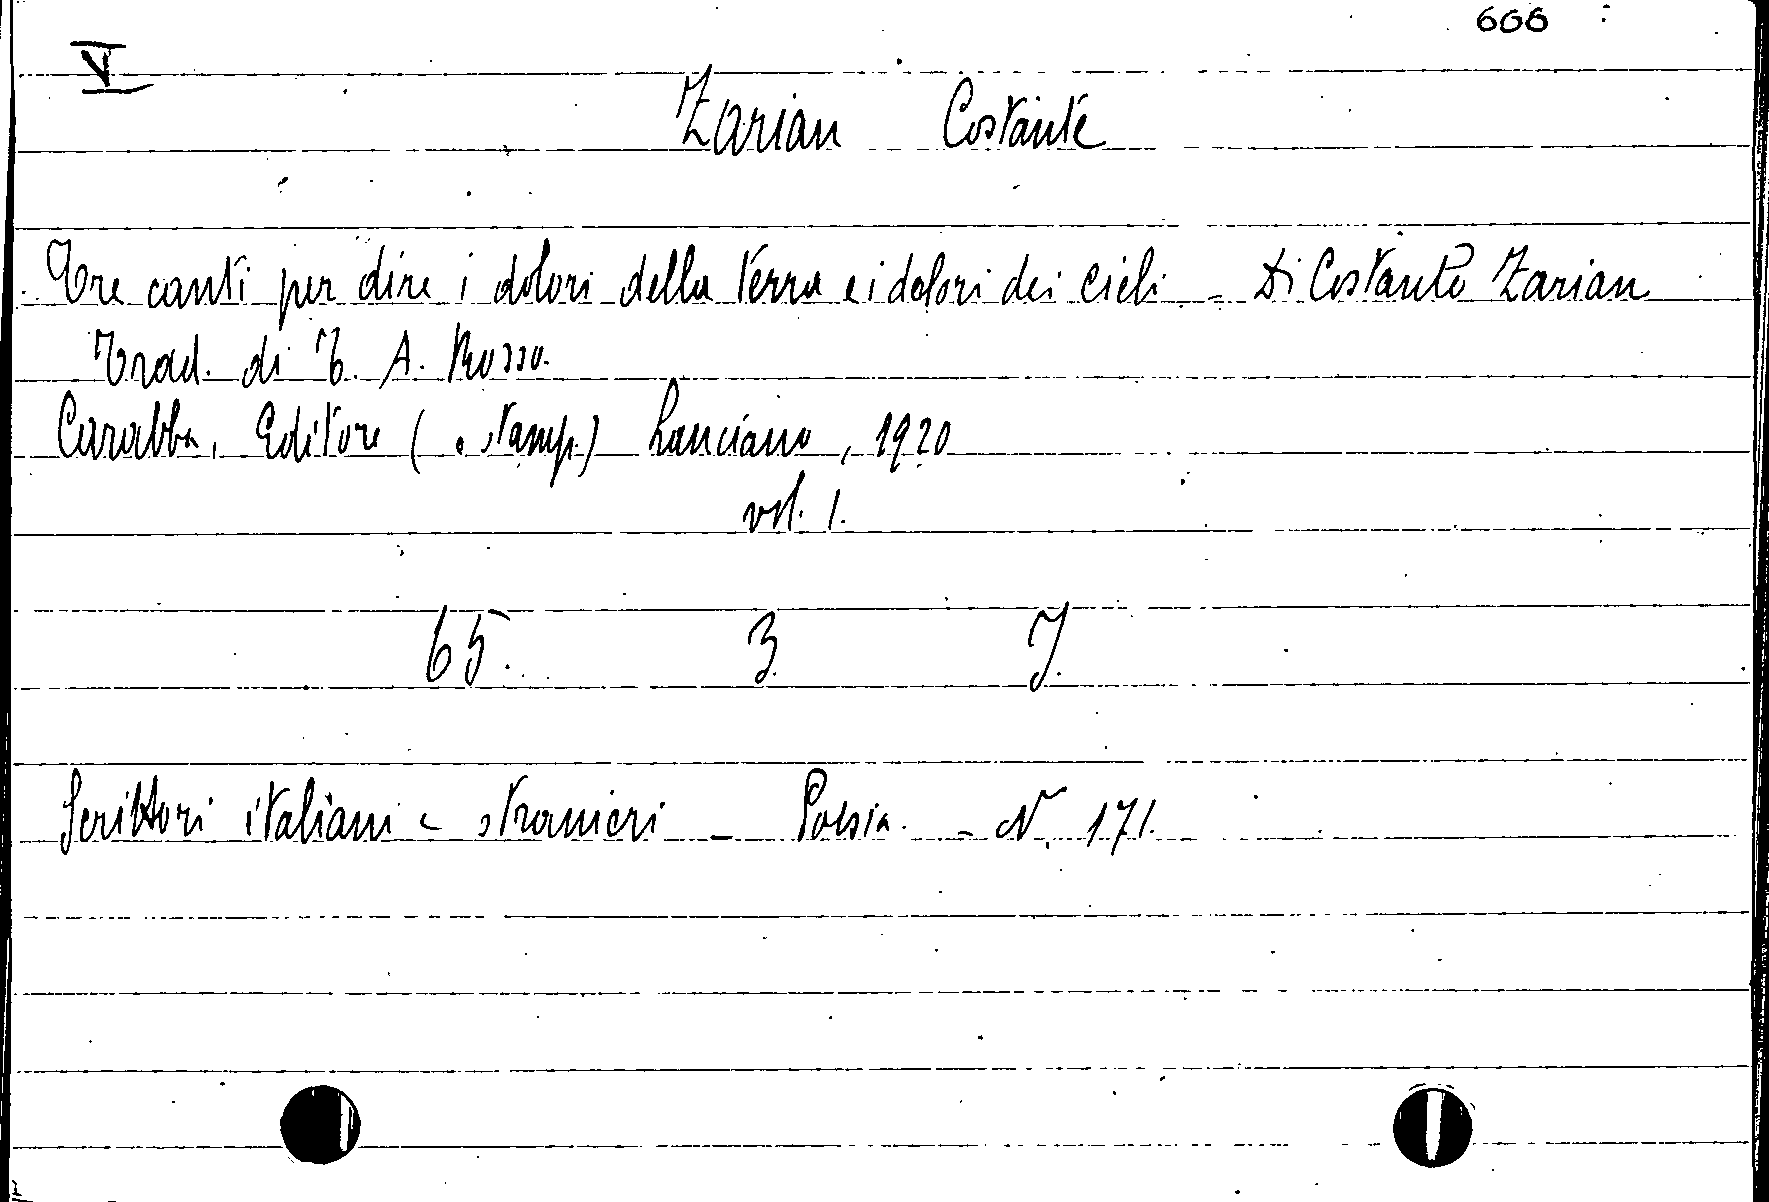 606
V
Zarian Costante
Tre canti per dire i dolori della terra e i dolori dei cieli - Di Costante Zarian
Trad. di T. A. Russo.
Carabba, Editore (e stamp.) Lanciano, 1920
vol. 1.
65. 3. 7.
Scrittori italiani e stranieri - Poesia. - N. 171.